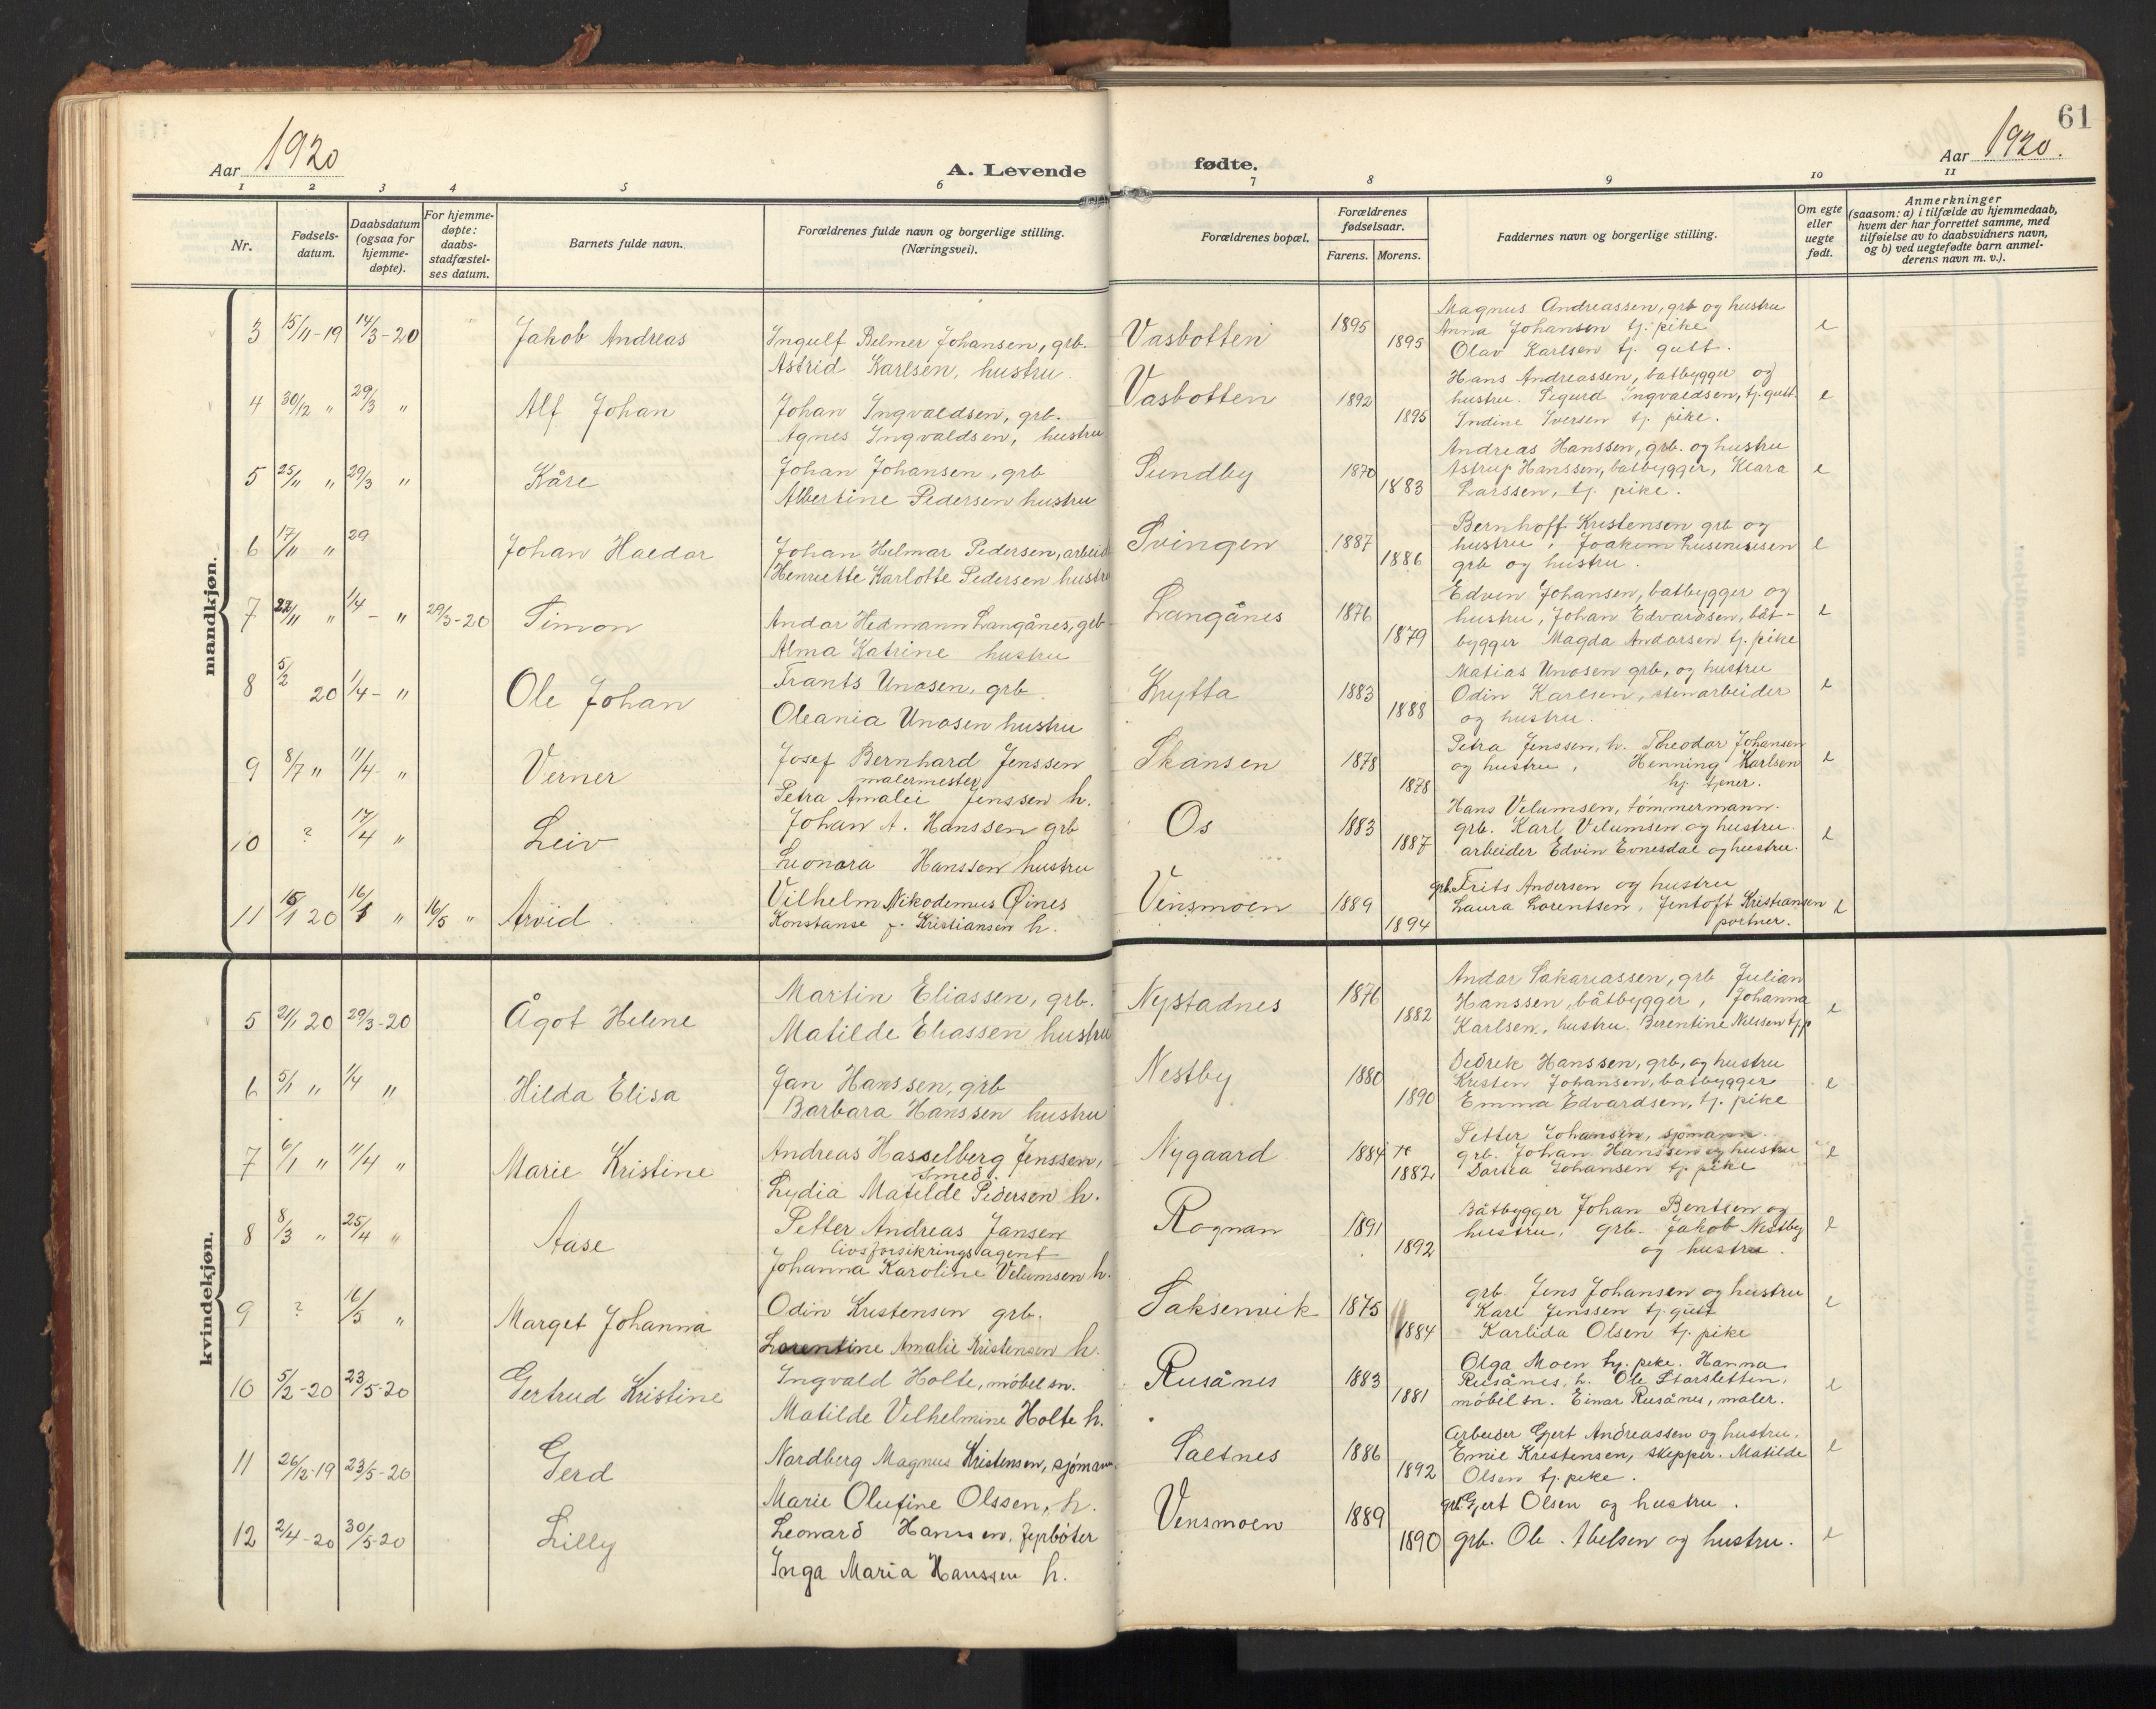 61
Aar 1920
A. Levende fødte.
Aar 1920.
1 2 3 4 5 6 7 8 9 10 11
Nr.
Fødsels-
datum.
Daabsdatum
(ogsaa for
hjemme-
døpte).
For hjemme-
døpte:
daabs-
stadfæstel-
ses datum.
Barnets fulde navn.
Forældrenes fulde navn og borgerlige stilling.
(Næringsvei).
Forældrenes bopæl.
Forældrenes
fødselsaar.
Farens. Morens.
Faddernes navn og borgerlige stilling.
Om egte
eller
uegte
født.
Anmerkninger
(saasom: a) i tilfælde av hjemmedaab,
hvem der har forrettet samme, med
tilføielse av to daabsvidners navn,
og b) ved uegtefødte barn anmel-
derens navn m. v.).
mandkjøn.
3 15/11-19 14/3-20 Jakob Andreas
Ingulf Belmer Johansen, grb.
Astrid Karlsen, hustru
Vasbotten 1895 1895
Magnus Andreassen, grb og hustru
Anna Johansen tj. pike
Olav Karlsen tj. gutt.
e
4 30/12 " 29/3 " Alf Johan
Johan Ingvaldsen, grb.
Agnes Ingvaldsen, hustru
Vasbotten 1892 1895
Hans Andreassen, båtbygger og
hustru. Sigurd Ingvaldsen, tj. gutt.
Indine Iversen tj. pike.
e
5 25/11 " 29/3 " Kåre
Johan Johansen, grb
Albertine Pedersen hustru
Sundby 1870 1883
Andreas Hanssen, grb. og hustru
Astrup Hanssen, båtbygger, Klara
Larssen, tj. pike.
e
6 17/11 " 29 Johan Haldor
Johan Helmar Pedersen, arbeid
Henriette Karlotte Pedersen hustru
Svingen 1887 1886
Bernhoff Kristensen grb og
hustru, Joakim
grb og hustru.
e
7 22/11 " 1/4 - " 29/3-20 Simon
Andor Hedmann Langånes, grb
Alma Katrine hustru
Langånes 1876 1879
Edvin Johansen, båtbygger og
hustru, Johan Edvardsen, båt-
bygger Magda Andorsen tj. pike
e
8 5/2 20 1/4 - " Ole Johan
Frants Unosen, grb
Oleania Unosen hustru
Krytta 1883 1888
Matias Unosen grb, og hustru
Odin Karlsen, stenarbeider
og hustru.
e
9 8/7 " 11/4 - " Verner
Josef Bernhard Jenssen
malermester
Petra Amalie Jenssen h.
Skansen 1878 1878
Petra Jenssen, h. Theodor Johansen
og hustru, Henning Karlsen
hj. tjener.
e
10 ? 17/4 " Leiv
Johan A. Hanssen grb
Leonora Hanssen hustru
Os 1883 1887
Hans Velumsen, tømmermann.
grb. Karl Velumsen og hustru.
arbeider Edvin Evnesdal og hustru.
e
11 15/1 20 16/5 " 16/5 " Arvid
Vilhelm Nikodemus Øines
Konstanse f. Kristiansen h.
Vensmoen 1889 1894
grb. Frits Andersen og hustru
Laura Lorentsen, Jentoft Kristiansen
portner.
e
kvindekjøn.
5 21/1 20 29/3-20 Ågot Helene
Martin Eliassen, grb.
Matilde Eliassen hustru
Nystadnes 1876 1882
Andor Sakariassen, grb Julian
Hanssen, båtbygger, Johanna
Karlsen, hustru. Berentine Nilssen tj.p
e
6 5/1 " 1/4 " Hilda Elisa
Jan Hanssen, grb
Barbara Hanssen hustru
Nestby 1880 1890
Didrek Hanssen, grb, og hustru
Kristen Johansen, båtbygger
Emma Edvardsen, tj. pike
e
7 6/1 " 11/4 " Marie Kristine
Andreas Hasselberg Jenssen,
smed.
Lydia Matilde Pedersen h.
Nygaard 1884 1882
Petter Johansen, sjømann.
grb. Johan Hanssen og hustru
Dortea Johansen tj. pike
e
8 8/3 " 25/4 " Aase
Petter Andreas Jansen
livsforsikringsagent
Johanna Karoline Velumsen h.
Rognan 1891 1892
Båtbygger Johan Bentsen og
hustru, grb. Jakob Nestby
og hustru.
e
9 ? 16/5 " Marget Johanna
Odin Kristensen grb.
Lorentine Amalie Kristensen h.
Saksenvik 1875 1884
grb. Jens Johansen og hustru
Karl Jenssen tj. gutt
Karlida Olsen tj. pike
e
10 5/2-20 23/5-20 Gertrud Kristine
Ingvald Holte, møbelsn.
Matilde Vilhelmine Holte h.
Rusånes 1883 1881
Olga Moen tj. pike. Hanna
Rusånes, h. Ole Storsletten,
møbelsn. Einar Rusånes, maler.
e
11 26/12-19 23/5-20 Gerd
Nordberg Magnus Kristensen, sjømann.
Marie Olufine Olssen, h.
Saltnes 1886 1892
Arbeider Gjert Andreassen og hustru.
Emil Kristensen, skipper. Matilde
Olsen tj. pike.
e
12 2/4-20 30/5-20 Lilly
Leonard Hanssen, fyrbøter
Inga Maria Hanssen h.
Vensmoen 1889 1890
grb. Gjert Olsen og hustru.
grb. Ole Abelsen og hustru.
e